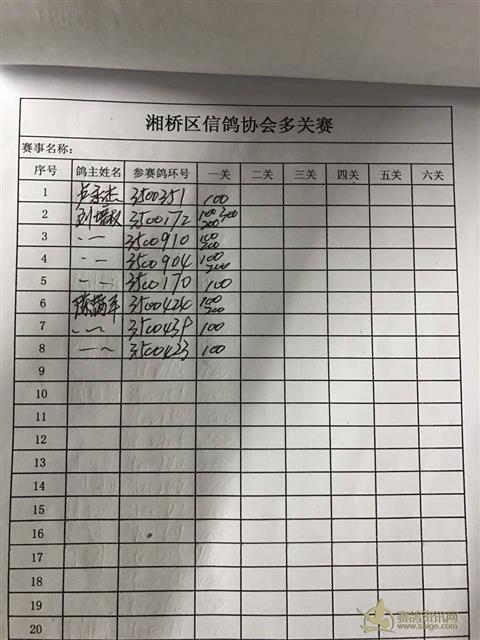 湘桥区信鸽协会多关赛
赛事名称:
序号 鸽主姓名 参赛鸽环号 一关 二关 三关 四关 五关 六关
1 3500351 100
2 3500172 100 300 200
3 3500910 100 200
4 3500904 100 200
5 3500170 100
6 3500430 100 200
7 3500439 100
8 3500423 100
9
10
11
12
13
14
15
16
17
18
19
20
赛鸽资讯网
www.saige.com